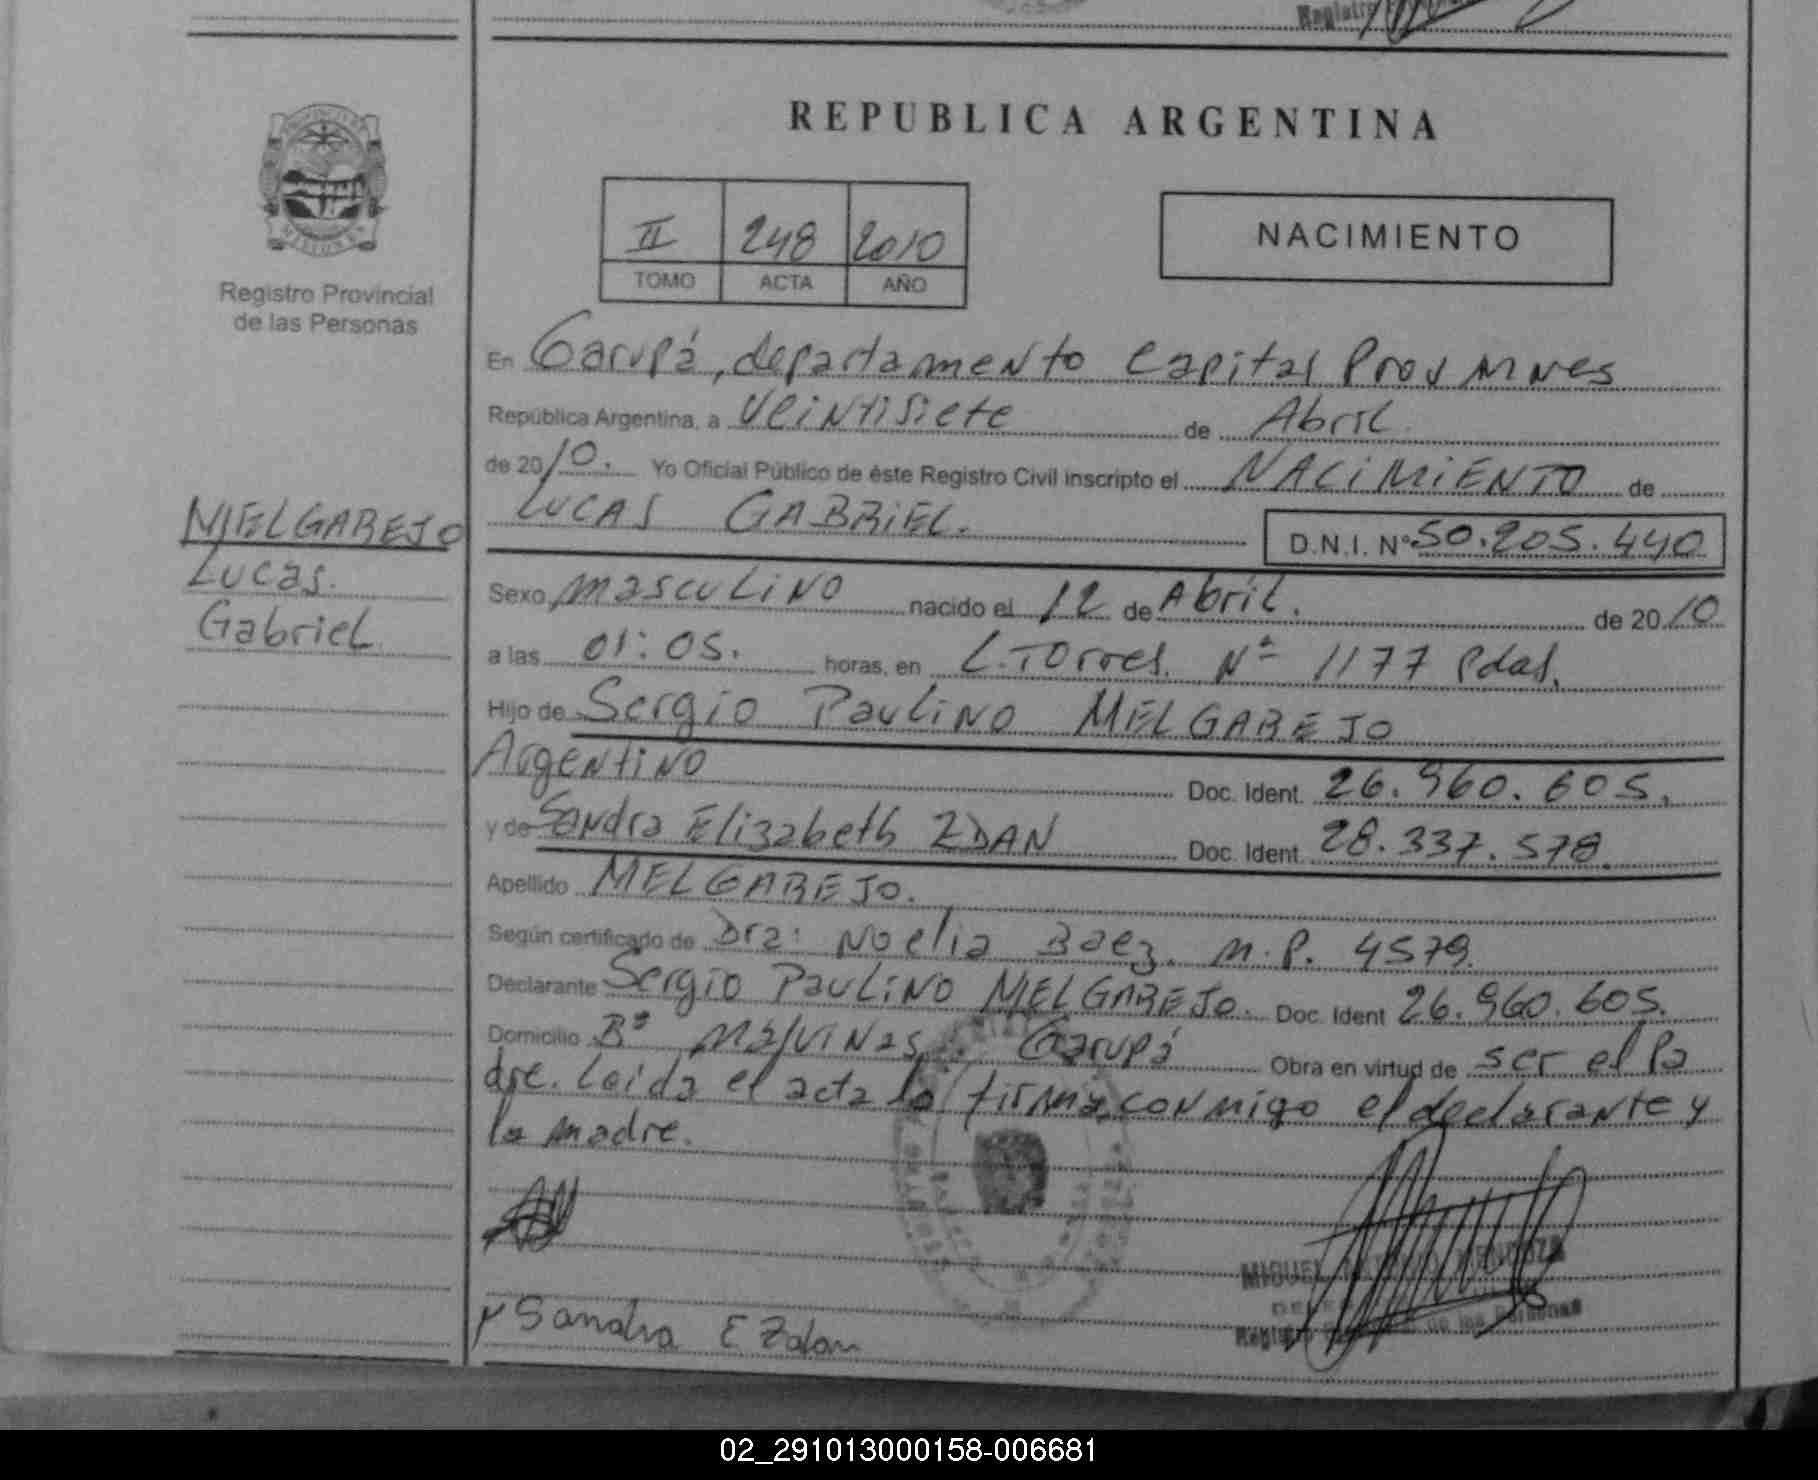 Registro
REPUBLICA ARGENTINA
II 248 2010
TOMO ACTA AÑO
NACIMIENTO
MISIONES
Registro Provincial
de las Personas
MELGAREJO
Lucas.
Gabriel
En Garupá, departamento Capital Prov Mnes
República Argentina, a Veintisiete de Abril.
de 2010. Yo Oficial Público de éste Registro Civil inscripto el NACIMIENTO de
LUCAS GABRIEL. D.N.I. Nº 50.205.440
Sexo masculino nacido el 12 de Abril. de 2010
a las 01:05. horas, en L. Torres. Nº 1177 Pdas.
Hijo de Sergio Paulino MELGAREJO
Argentino Doc. Ident. 26.960.605.
y de Sandra Elizabeth ZDAN Doc. Ident. 28.337.578.
Apellido MELGAREJO.
Según certificado de Dra: Noelia Baez. M.P. 4579.
Declarante Sergio Paulino MELGAREJO. Doc. Ident 26.960.605.
Domicilio Bº Malvinas. Garupá Obra en virtud de ser el Pa
dre. Leida el acta la firma conmigo el declarante y
la madre.
MIGUEL MENDOZA
Registro de las Personas
Sandra E Zdan
02_291013000158-006681